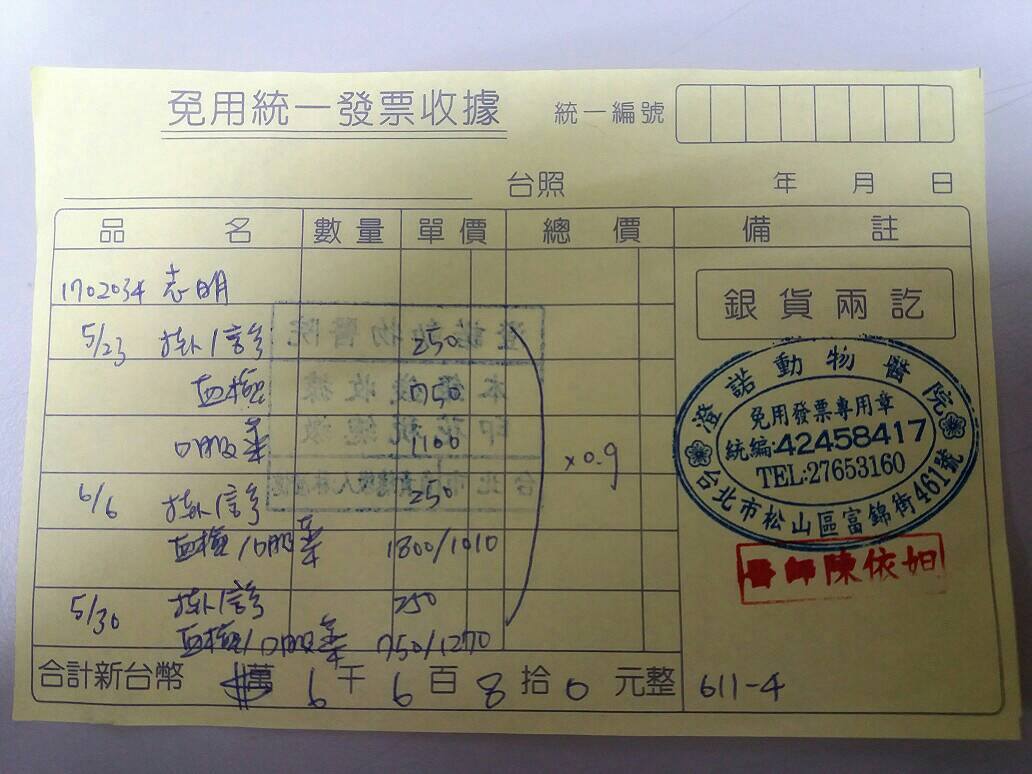 免用統一發票收據
統一編號
台照 年 月 日
品名 數量 單價 總價 備註
1702034 志明
銀貨兩訖
5/23 掛/診 250
血檢 750
口服藥 1100
x0.9
6/6 掛/診 250
血檢/口服藥 1800/1010
5/30 掛/診 250
血檢/口服藥 750/1270
合計新台幣 萬 6 千 6 百 8 拾 0 元整
611-4
澄諾動物醫院
免用發票專用章
統編:42458417
TEL:27653160
台北市松山區富錦街461號
醫師陳依妲
澄諾動物醫院
本鈐後收據
印花總繳